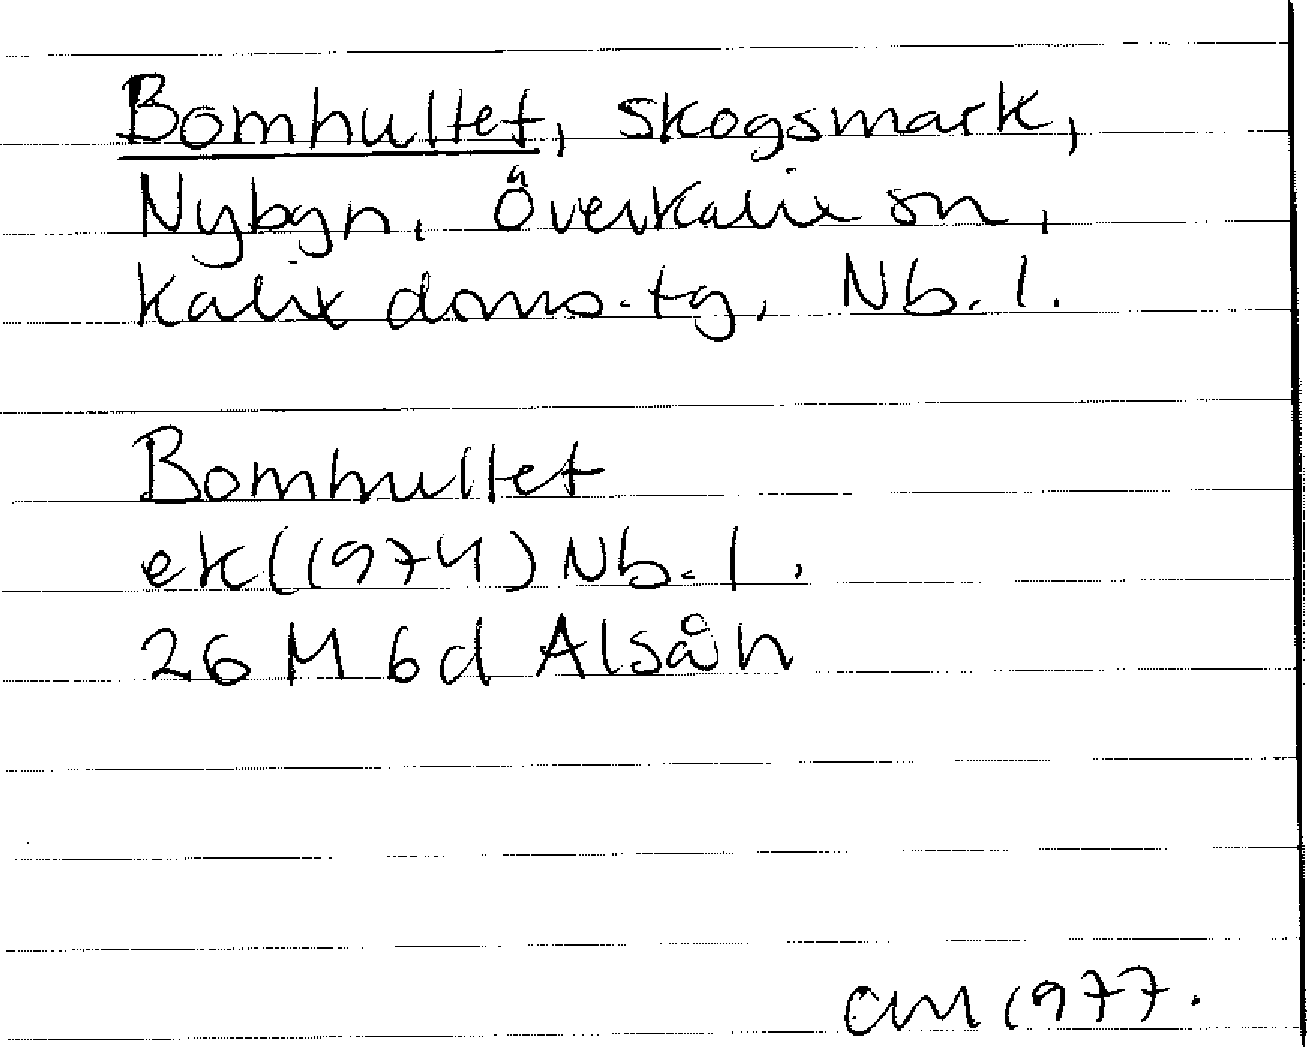 Bomhultet, skogsmark,
Nybyn, Överkalix sn,
Kalix doms.tg, Nb.l.
Bomhultet
ek (1974) Nb.l.
26 M 6d Alsån
am 1977.